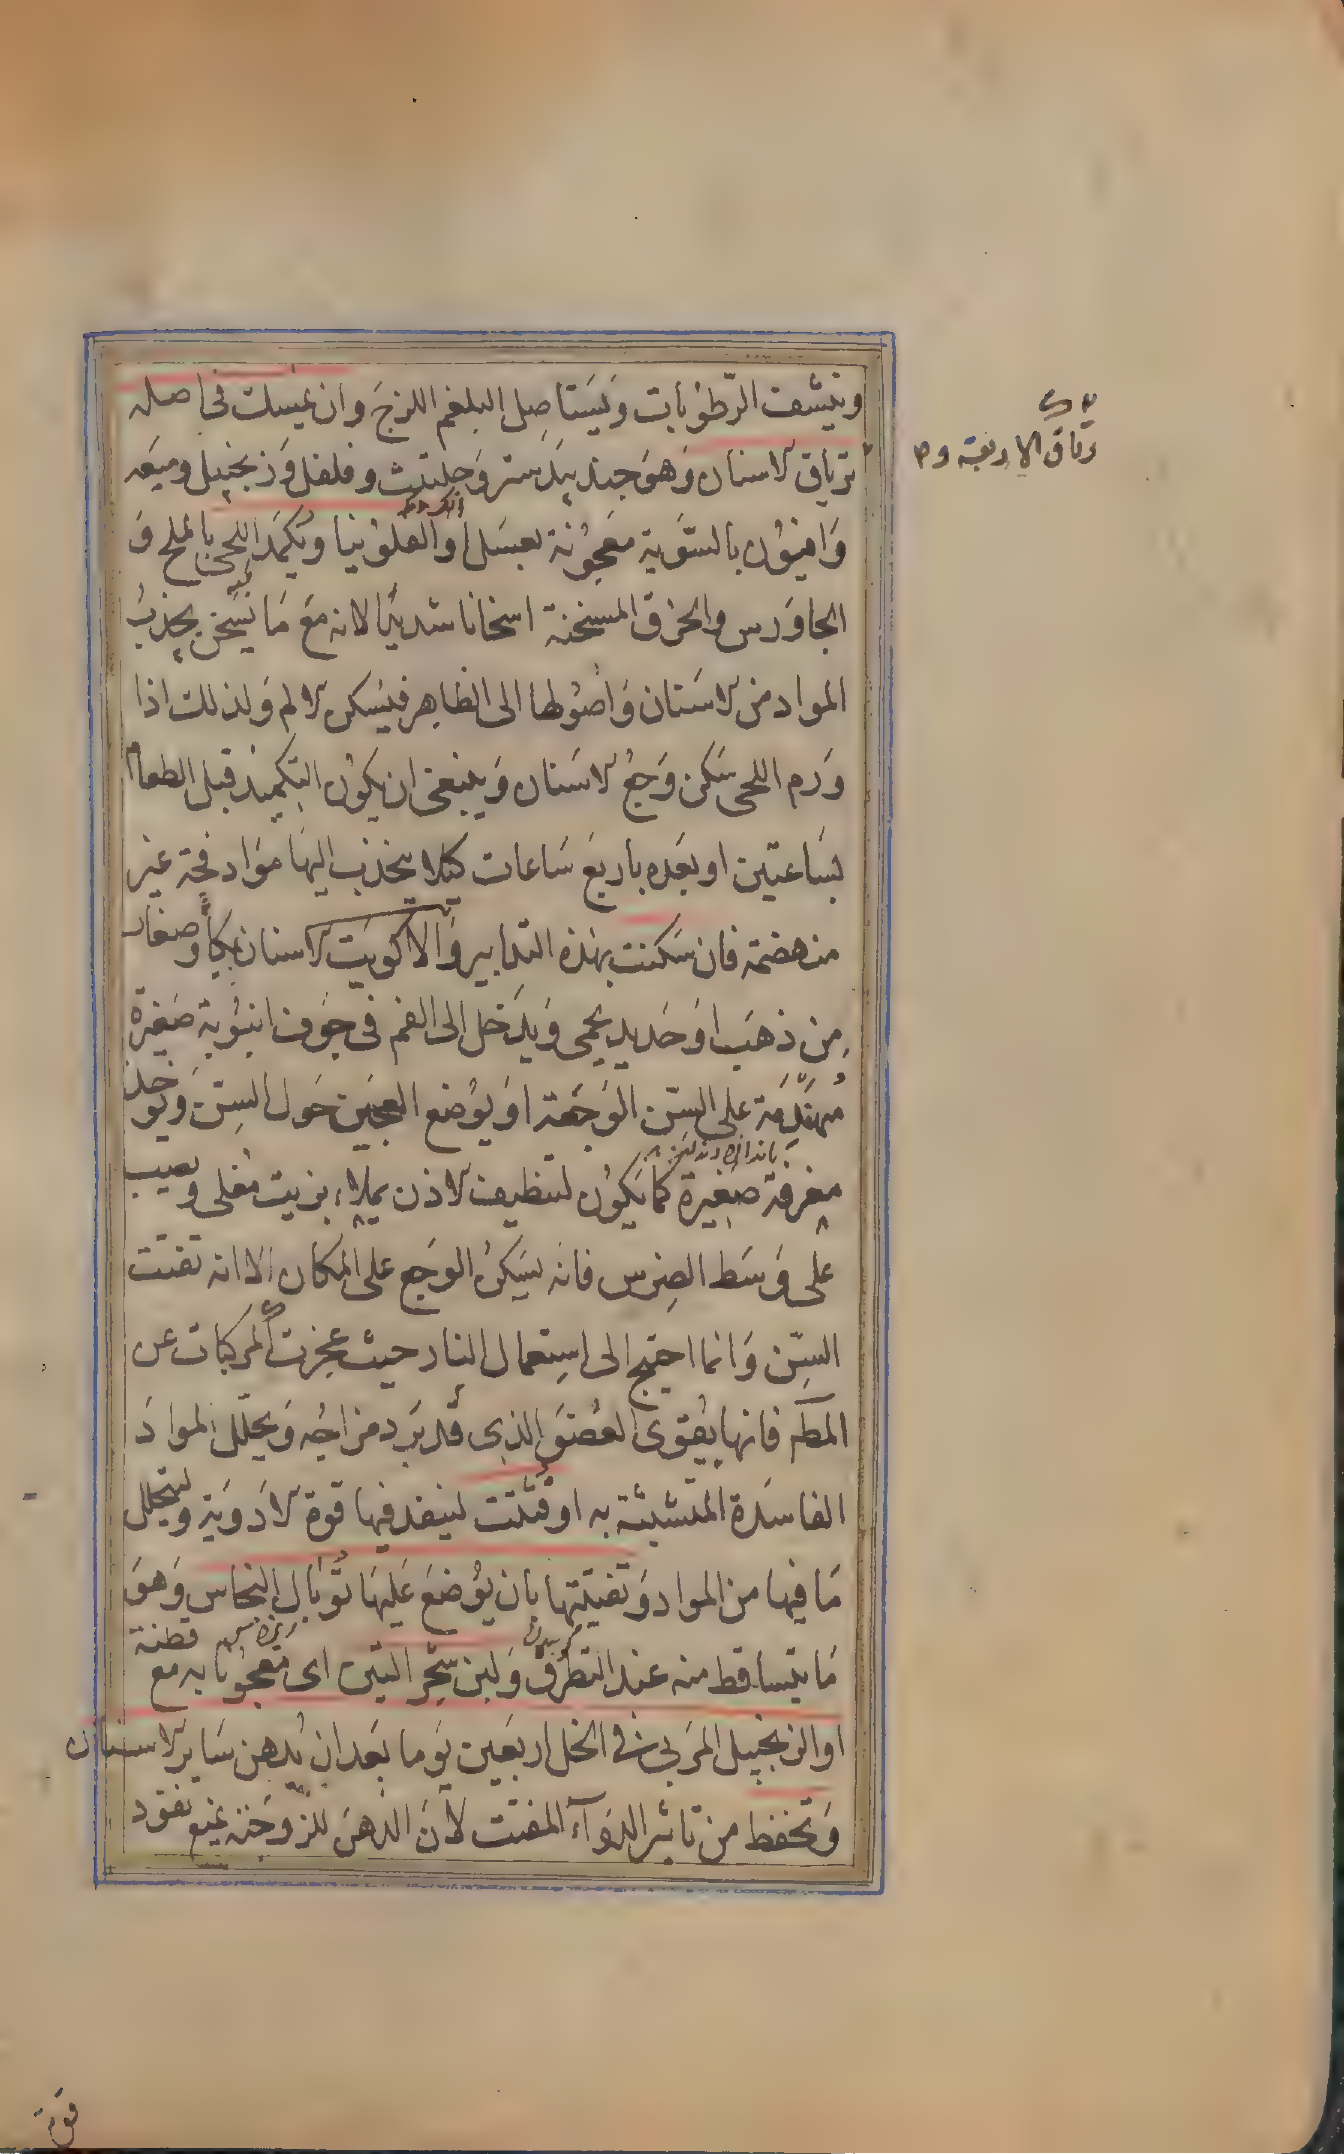 وينشف الرّطوُبات وَيَستاصِل البلغم اللزجَ وان يمسك فى اصله
ترياق الاسنان وَهوَ جندبيدستر وَحلتيث وفلفل وَزنجبيل وميعَه
وَافيوُن بالسّوية معَجوُنة بعسَل او الفلوُنيا ويكمَد اللحى بالملح وَ
الجاوَرس والخرق المسخنة اسخانا شديدًا لانه معَ مَا يُسَخن يجذبُ
المواد من الاسَنان وَاصُولها الى الظاهِر فيسَكن الالم وَلذلك اذا
وَرم اللحى سَكن وَجعُ الاسَنان وَينبغى ان يكوُن التكميد قبل الطعام
بسَاعتين او بعَده باربعَ سَاعات كيلا يخذب اليهَا موَاد فجة غير
منهضمة فان سَكنت بهذه التدابير وَالا كويَت الاسنان بمكاوٍ صغار
من ذهَب اوَ حَديد يحمى وَيدَخل الى الفم فى جوَف انبوُبة صَغيرَة
مُهندَمَة على السِّن الوَجعَة اوَ يوُضع العجَين حَول السِن وَيوخذ
بانداره
مغرفة صَغيرة كما يَكوُن لتنظيف الاذن يملاء بزيت مغلى ويصيب
على وَسَط الضِرس فانه يسَكنُ الوَجع على المكان الا انه تفتت
السِّن وَانما احتيج الى اسِتعمال النار حيث عجزت المركبات عن
فانها يقوى العُضوَ الذى قد برَد مزاجُه وَيحلّل الموادَ
الفاسَدة المتشبثة به او فتّتت لينفد فيها قوة الادَويَة وليتحلل
مَا فيها من المواد وَتفتيتها بان يوُضعَ عَليهَا توُبال النحاس وَهوَ
مَا يتساقط منه عند التطرق وَلبن شجَر التين اى معَجوُنا به معَ قطنة
او الزنجبيل المرَبى فى الخل اربعَين يَوما بعَد ان يُدهن سَاير الاسنان
وَتحفظ من تاثير الدوَآء المفتت لانَ الدهنَ للزوجَته يمنع نفود
ترياق الاربعة وم
قوة